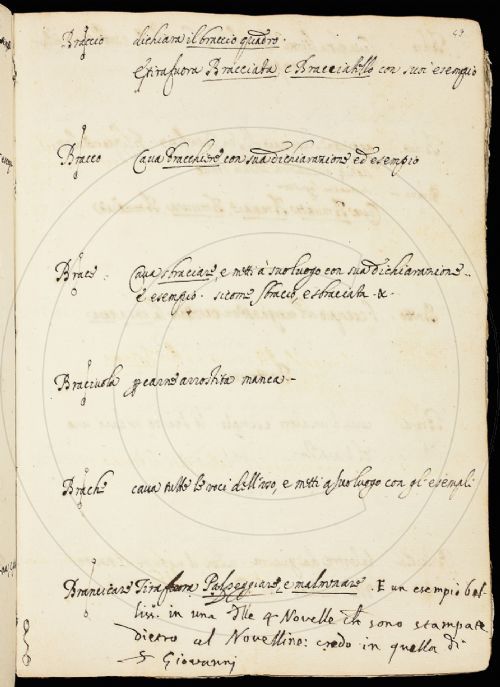 Braccio dichiara il braccio quadro.
Et tira fuora Bracciata e Bracciatello con suoi esempio
Bracco Cava bracchiere con sua dichiarazione ed esempio
Brace Cava sbraciare, e metti à suo luogo con sua dichiarazione
e esempio. sicome sbracio, e sbraciata &
Braciuola per carne arrostita manca -
Brache cava tutte le voci dell'uso, e metti a suo luogo con gl'esempli
Brancicare Tira fuora Palpeggiare, e malmenare. E un esempio bel-
liss. in una delle 4 Novelle che sono stampate
dietro al Novellino: credo in quella di
S Giovanni